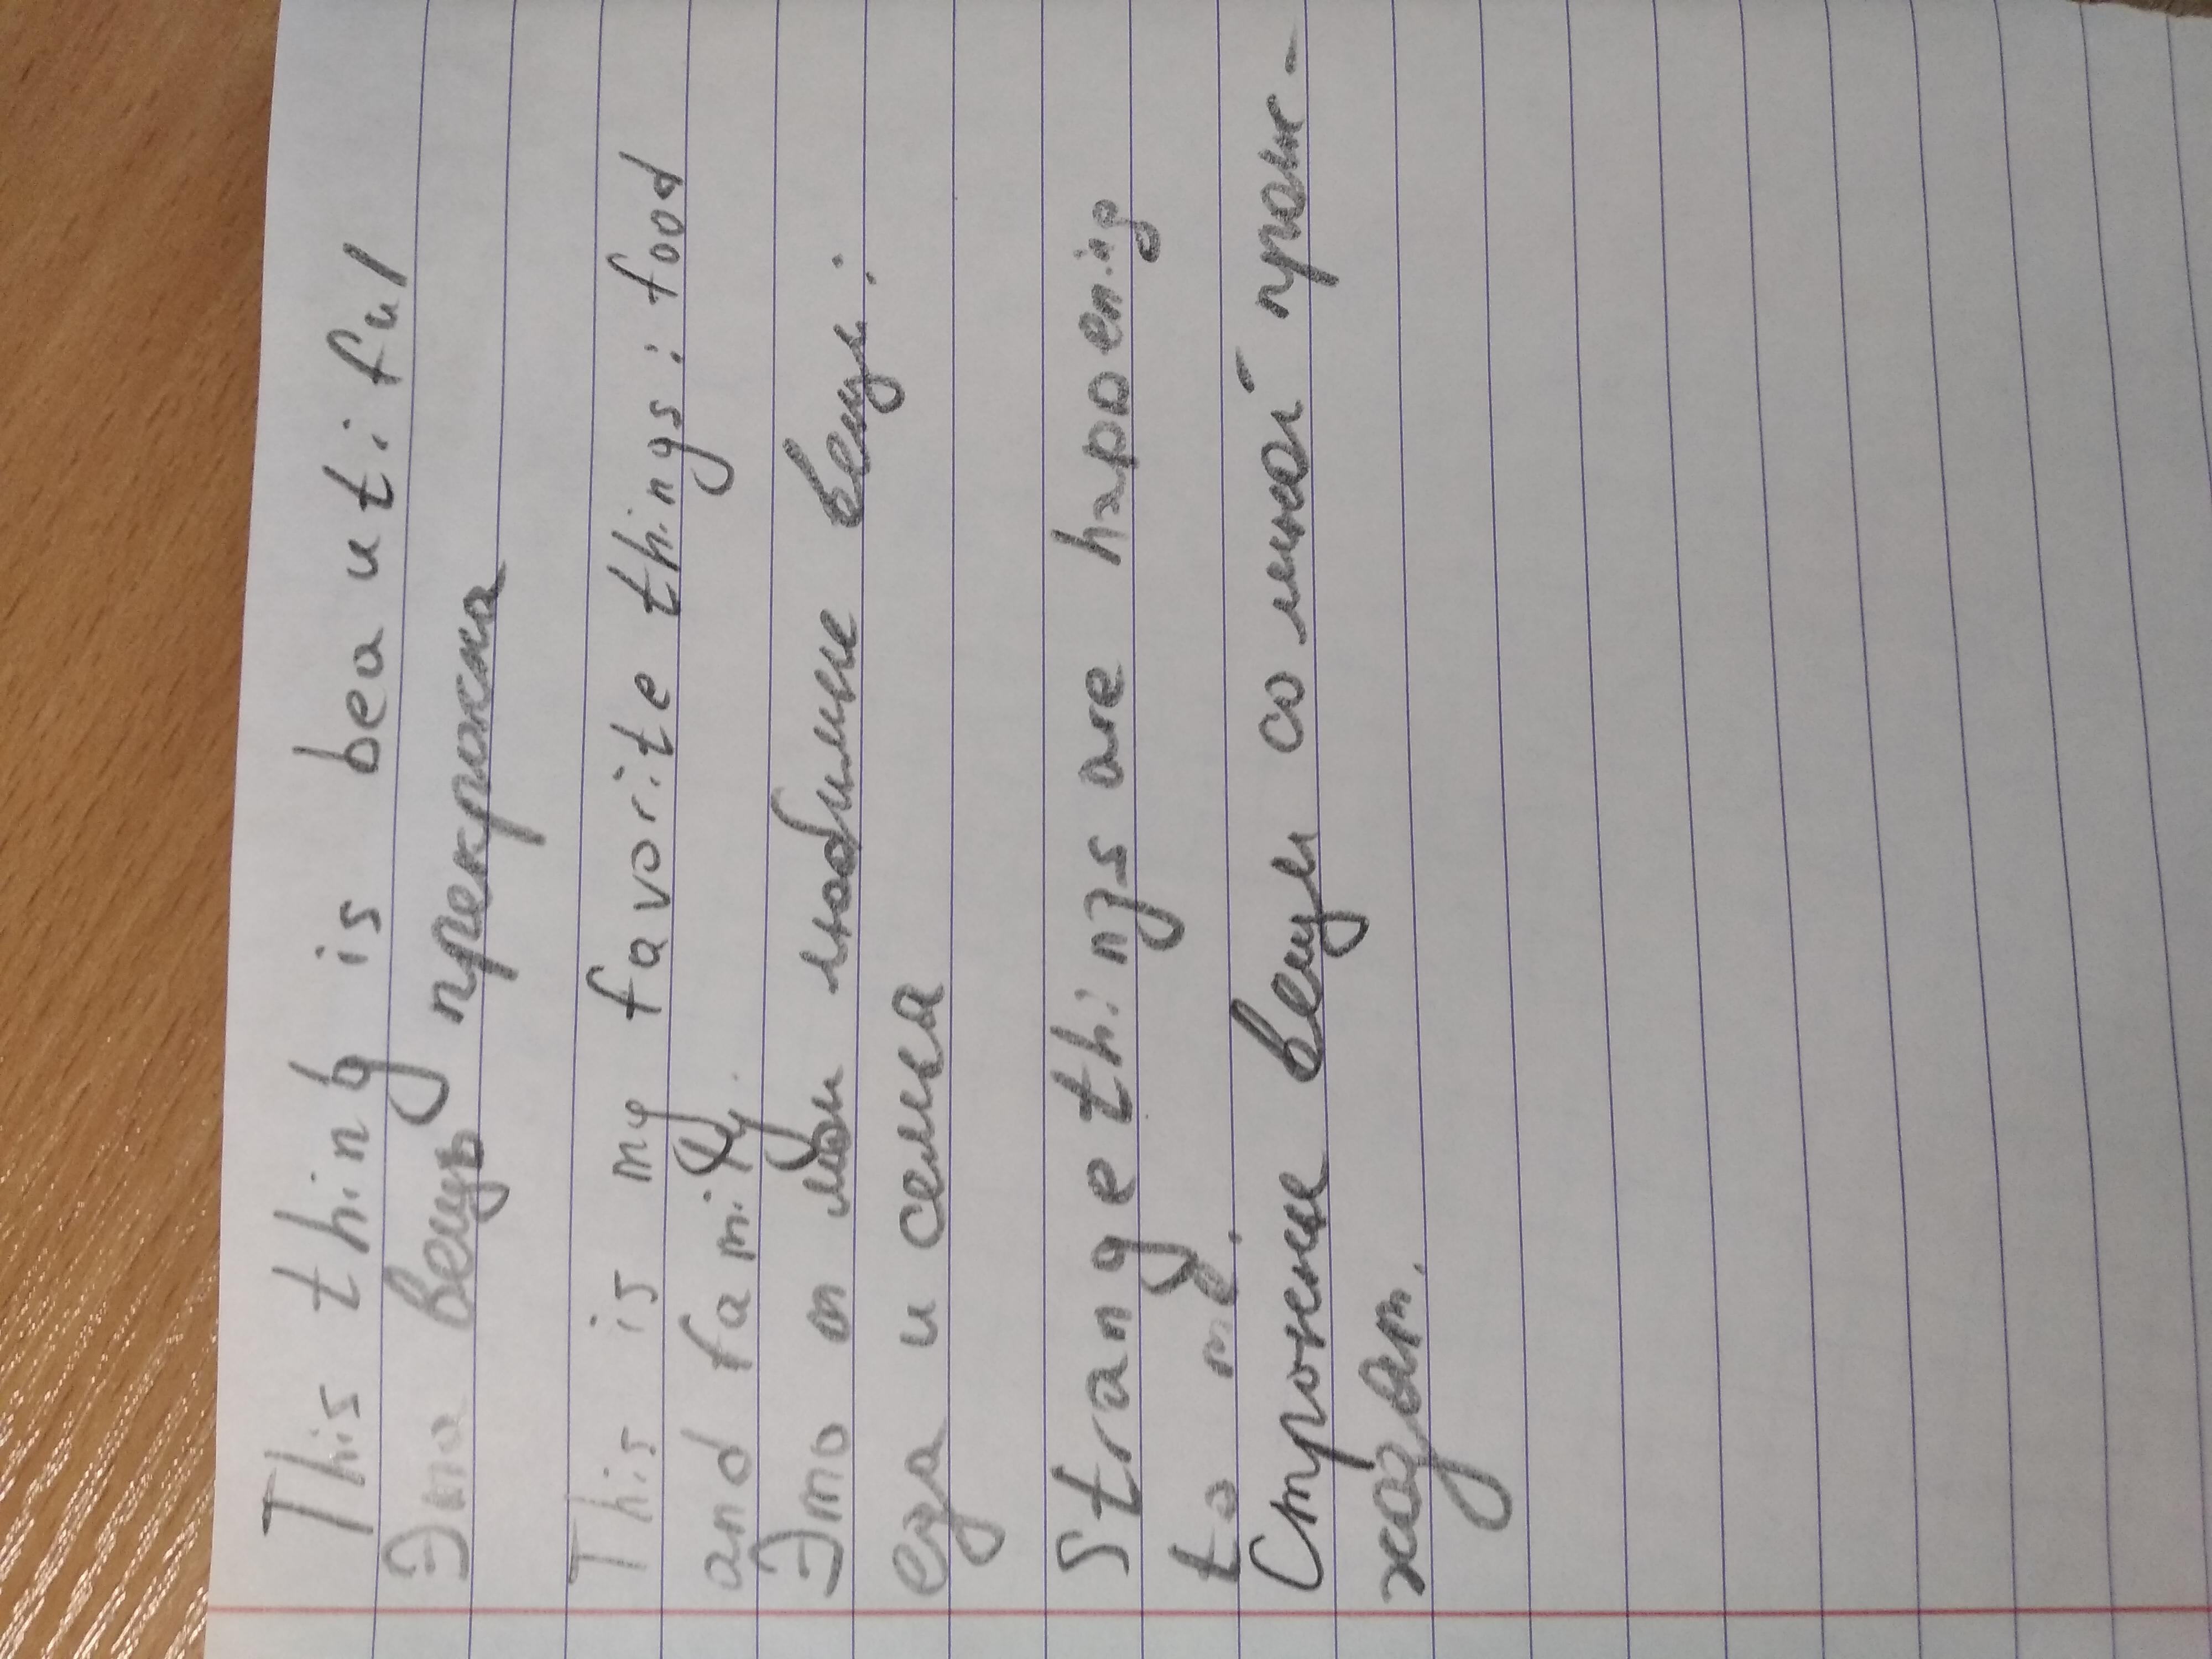 This thing is beautiful
Эта вещь прекрасна
This is my favorite things: food
and family.
Это мои любимые вещи:
еда и семья
Strange things are happenig
to me.
Странные вещи со мной проис-
ходят.